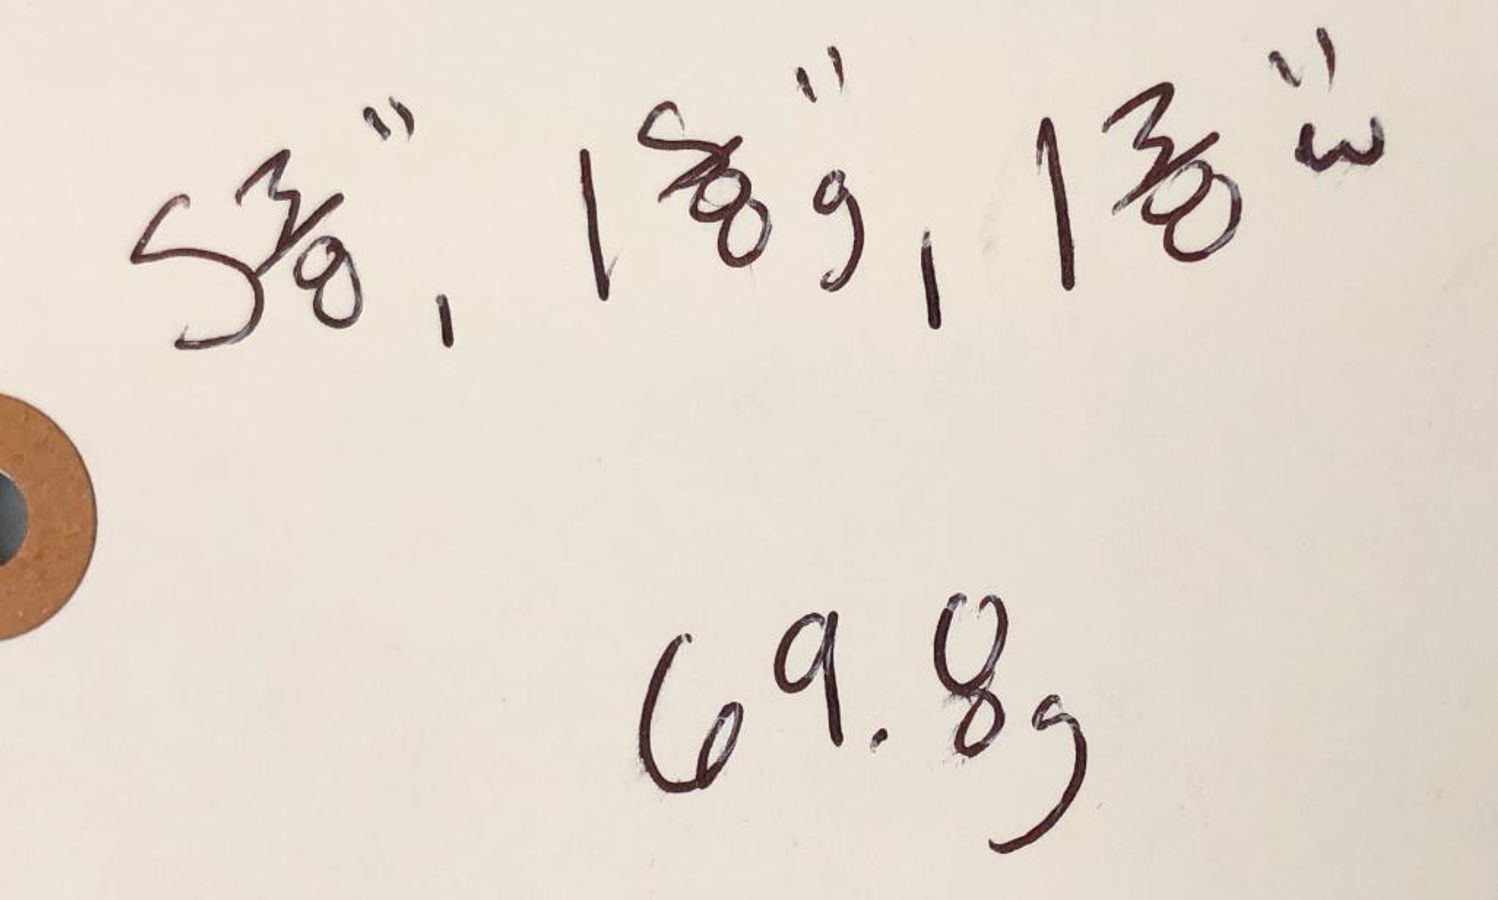 5 3/8", 1 5/8" g, 1 3/8" w
69.8g